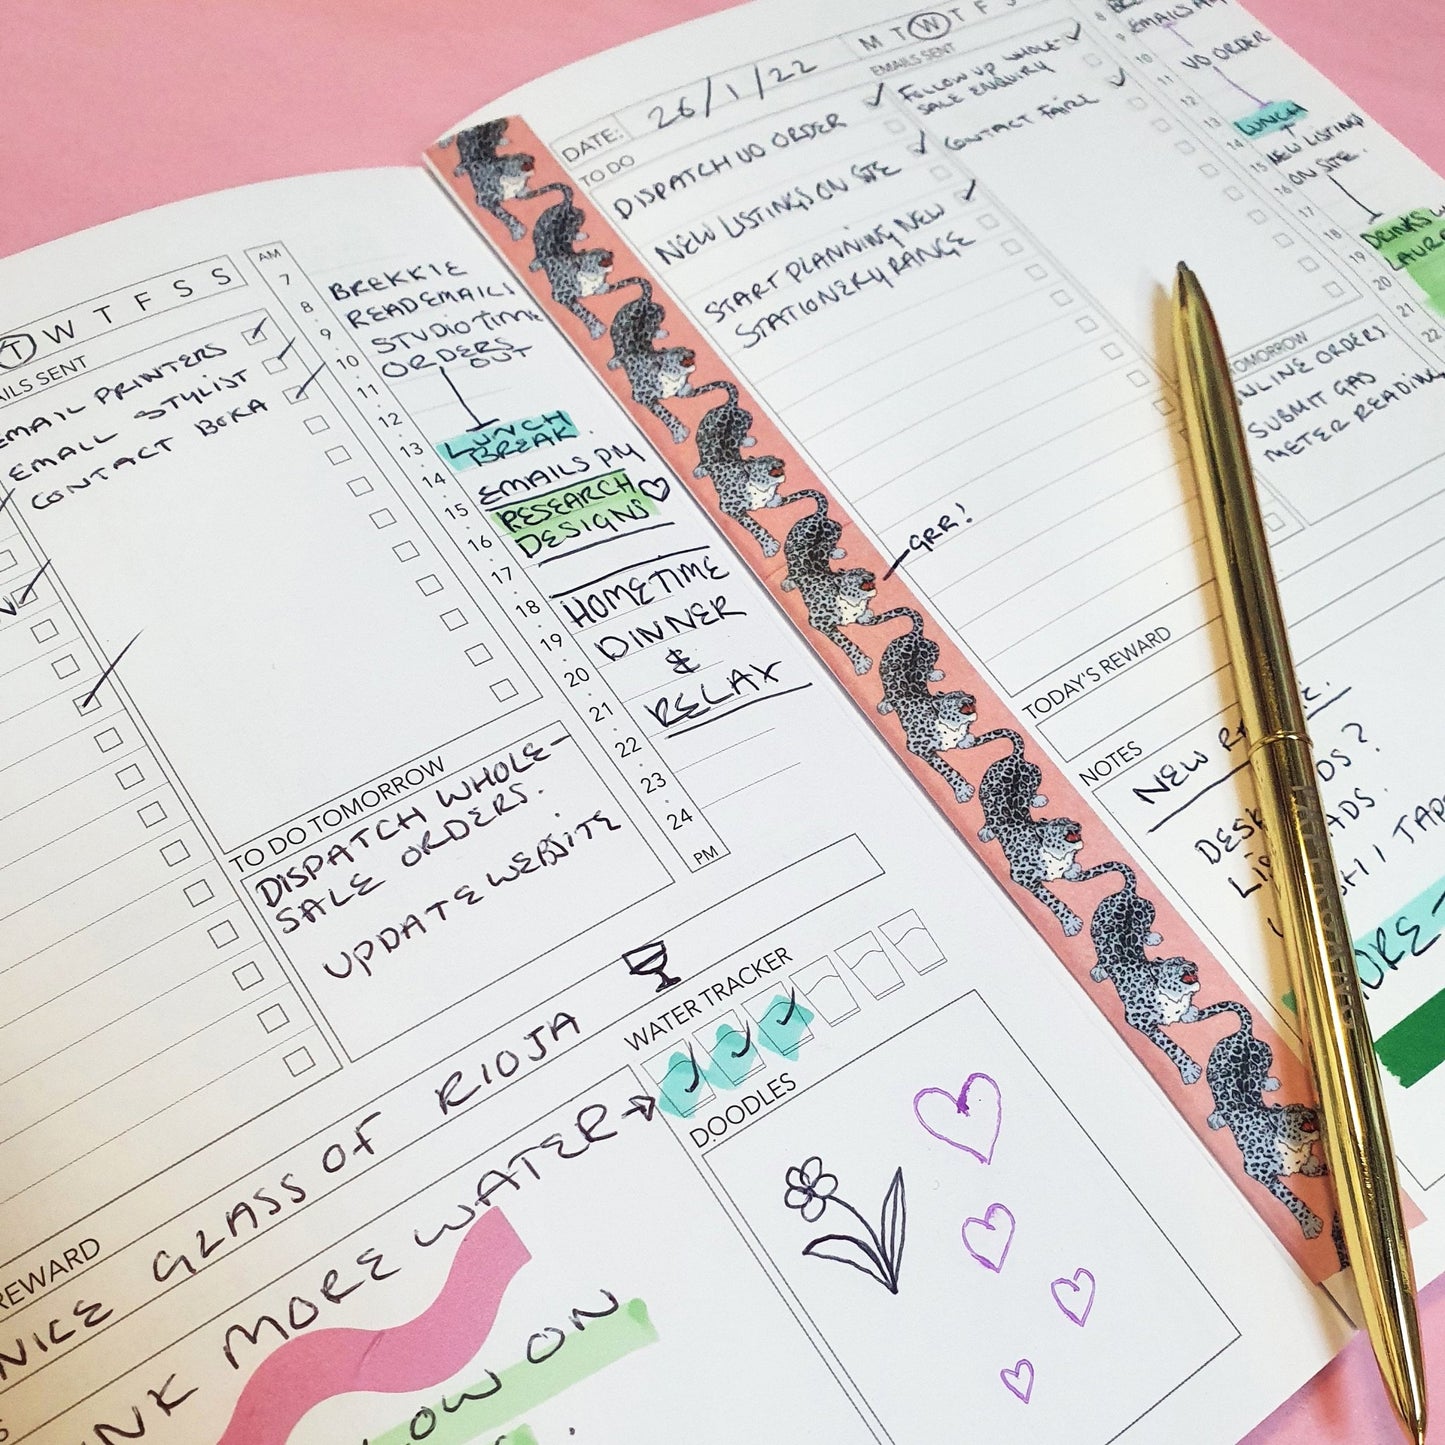 T W T F S S
AILS SENT
EMAIL PRINTERS
EMAIL STYLIST
CONTACT BEKA
AM
7
8
9
10
11
12
13
14
15
16
17
18
19
20
21
22
23
24
PM
BREKKIE
READ EMAILS
STUDIO TIME
ORDERS
OUT
LUNCH
BREAK
EMAILS PM
RESEARCH
DESIGNS
HOMETIME
DINNER
&
RELAX
TO DO TOMORROW
DISPATCH WHOLE-
SALE ORDERS.
UPDATE WEBSITE
REWARD
NICE GLASS OF RIOJA
WATER TRACKER
MORE WATER
DOODLES
ON
DATE: 26/1/22
M T W T F S
TO DO
DISPATCH UO ORDER
NEW LISTINGS ON SITE
START PLANNING NEW
STATIONERY RANGE
EMAILS SENT
FOLLOW UP WHOLE-
SALE ENQUIRY
CONTACT FAIRE
8
9
10
11
12
13
14
15
16
17
18
19
20
21
22
EMAILS
UO ORDER
LUNCH
NEW LISTINGS
ON SITE.
DRINKS
LAURA
TOMORROW
ONLINE ORDERS
SUBMIT GAS
METER READING
GRR!
TODAY'S REWARD
NOTES
NEW